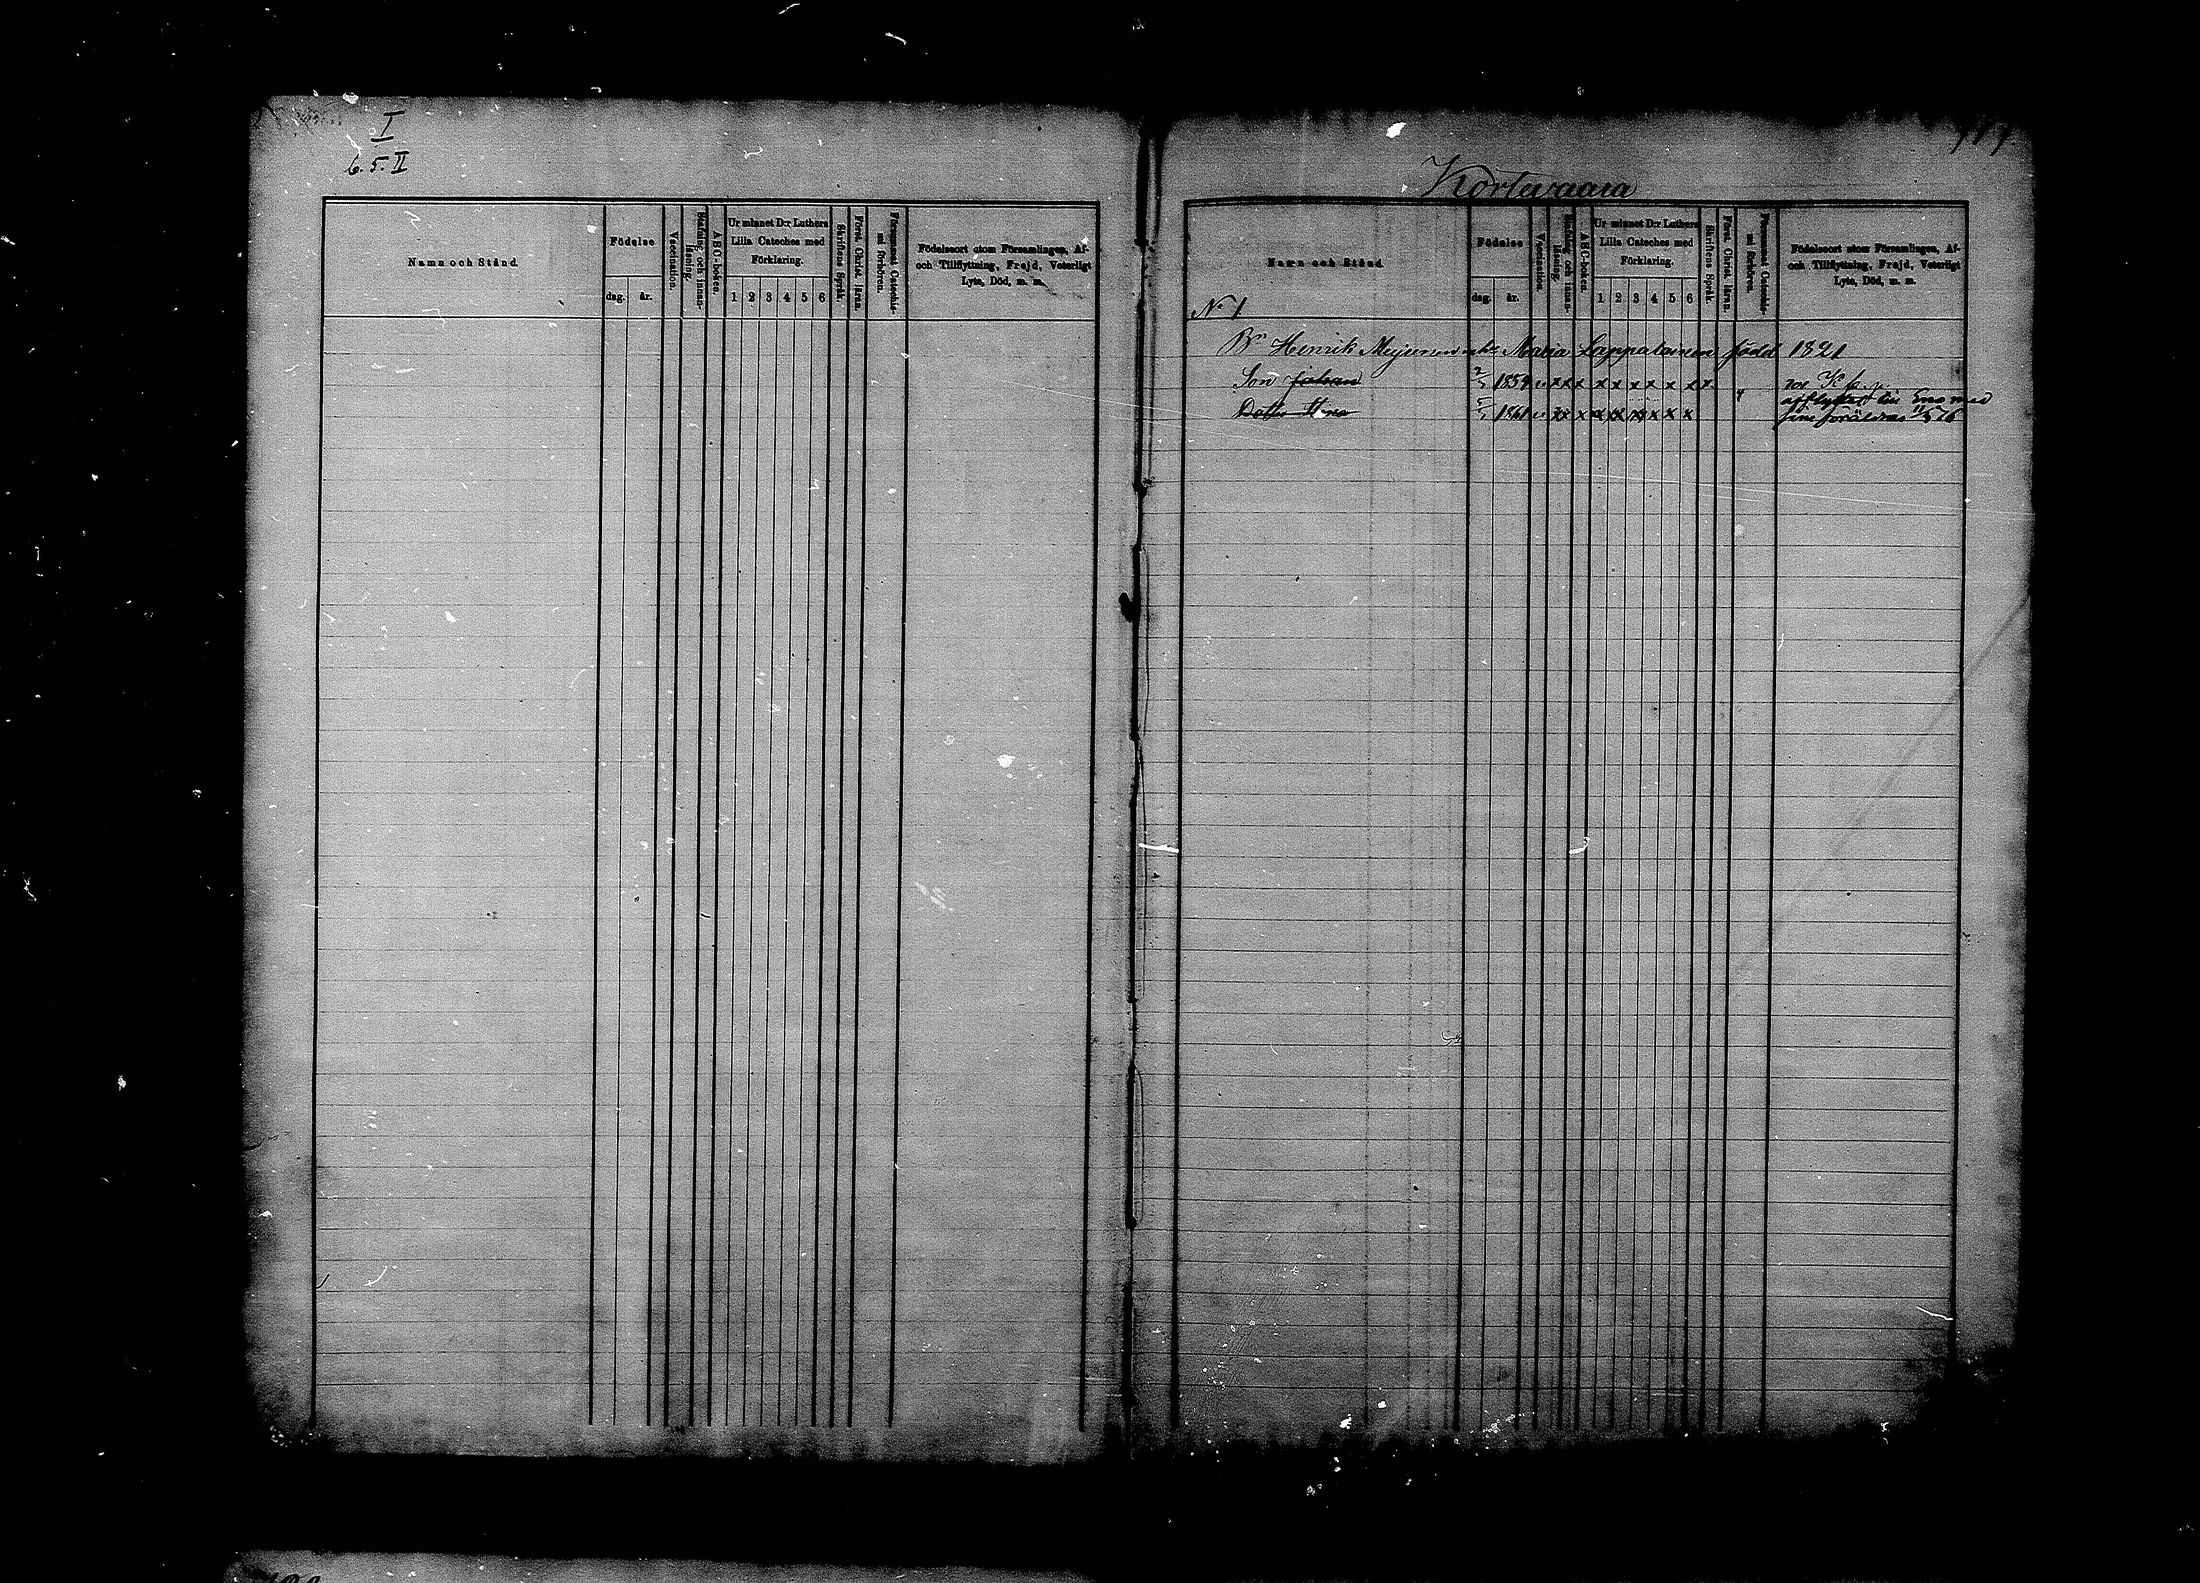 I
6. 5. II
Namn och Stånd.
Födelse
dag. år.
Vaccination.
Stafning och innan-
läsning.
ABC-boken.
Ur minnet D:r Luthers
Lilla Cateches med
Förklaring.
1 2 3 4 5 6
Skriftens Språk.
Först. Christ. läran.
Försummat Catechis-
mi förhören.
Födelseort utom Församlingen, Af-
och Tillflyttning, Frejd, Veterligt
Lyte, Död, m. m.
Kortevaara
Namn och Stånd.
Födelse
dag. år.
Vaccination.
Stafning och innan-
läsning.
ABC-boken.
Ur minnet D:r Luthers
Lilla Cateches med
Förklaring.
1 2 3 4 5 6
Skriftens Språk.
Först. Christ. läran.
Försummat Catechis-
mi förhören.
Födelseort utom Församlingen, Af-
och Tillflyttning, Frejd, Veterligt
Lyte, Död, m. m.
N:o 1
Bn Henrik Meijeinen Maria Lappalainen född 1821
Son Johan 1859 x x x x x x x x x x x
Dotter Stina 1861 x x x x x x x x x
afflyttad till Eno med
sina föräldrar